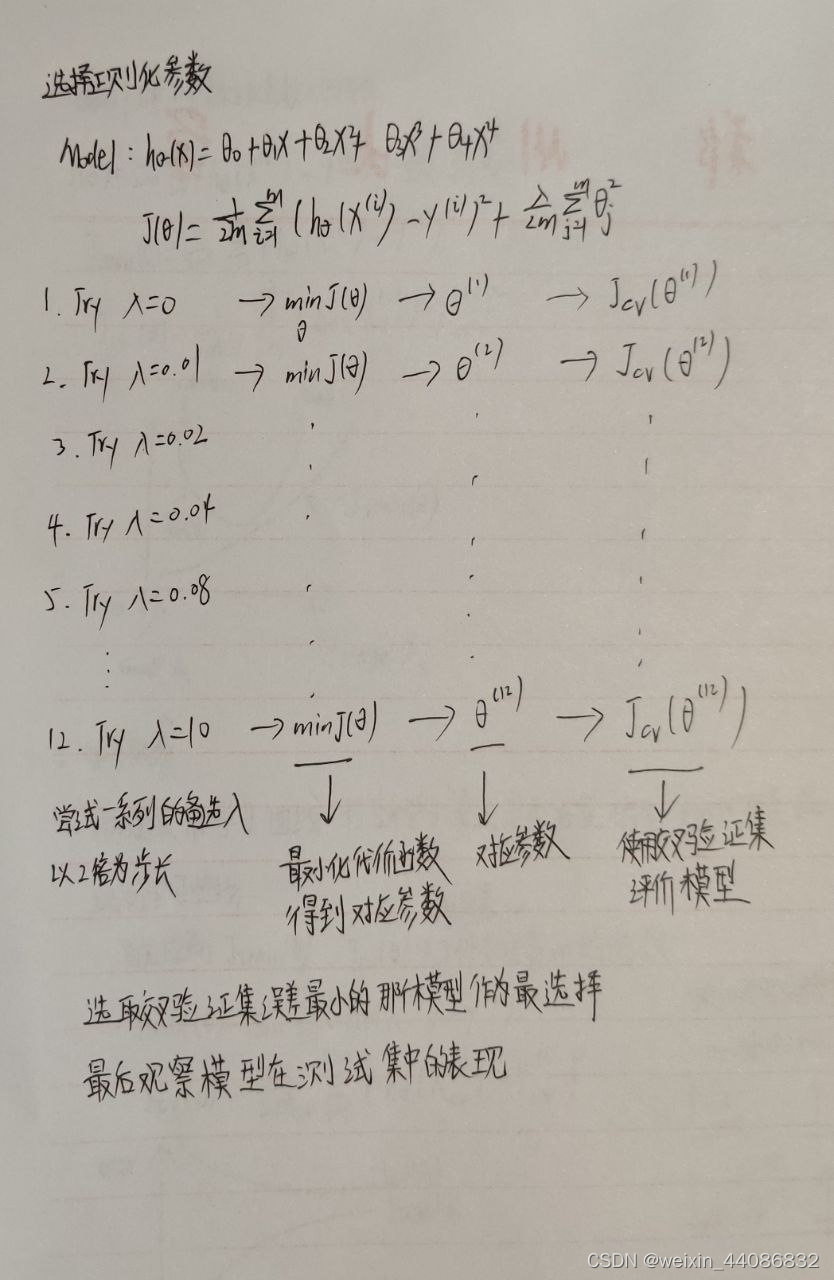 选择正则化参数
Model: hθ(x) = θ0 + θ1x + θ2x² + θ3x³ + θ4x⁴
J(θ) = 1/2m ∑i=1m (hθ(x(i)) - y(i))² + λ/2m ∑j=1m θj²
1. Try λ=0 → minθ J(θ) → θ(1) → Jcv(θ(1))
2. Try λ=0.01 → min J(θ) → θ(2) → Jcv(θ(2))
3. Try λ=0.02
4. Try λ=0.04
5. Try λ=0.08
12. Try λ=10 → min J(θ) → θ(12) → Jcv(θ(12))
尝试一系列的备选λ
以2倍为步长
最小化代价函数
得到对应参数
对应参数
使用交叉验证集
评价模型
选取交叉验证集误差最小的那个模型作为最选择
最后观察模型在测试集中的表现
CSDN @weixin_44086832